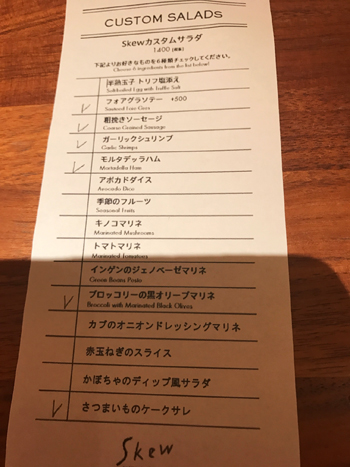 CUSTOM SALADS
Skewカスタムサラダ
1400(税抜)
下記よりお好きなものを6種類チェックしてください。
Choose 6 ingredients from the list below!
半熟玉子 トリフ塩添え
Softboiled Egg with Truffle Salt
フォアグラソテー +500
Sauteed Foie Gras
粗挽きソーセージ
Coarse Grained Sausage
ガーリックシュリンプ
Garlic Shrimps
モルタデッラハム
Mortadella Ham
アボカドダイス
Avocado Dice
季節のフルーツ
Seasonal Fruits
キノコマリネ
Marinated Mushrooms
トマトマリネ
Marinated Tomatoes
インゲンのジェノベーゼマリネ
Green Beans Pesto
ブロッコリーの黒オリーブマリネ
Broccoli with Marinated Black Olives
カブのオニオンドレッシングマリネ
赤玉ねぎのスライス
かぼちゃのディップ風サラダ
さつまいものケークサレ
Skew